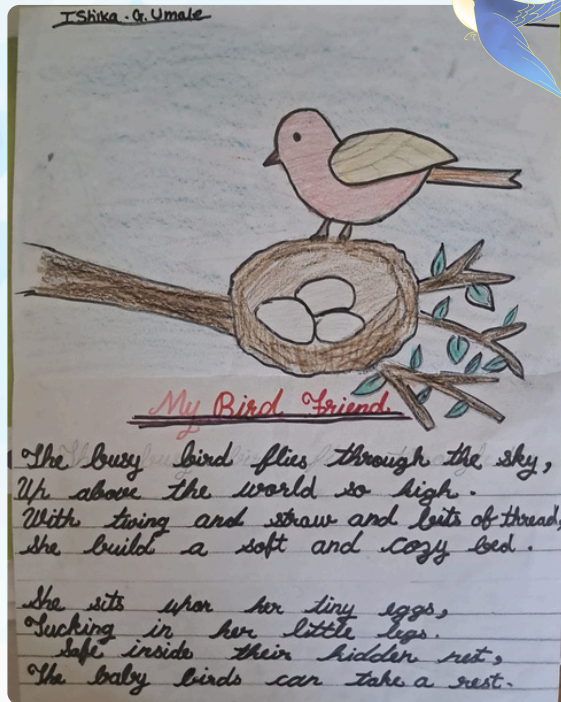 IShika . G. Umale
My Bird Friend
The busy bird flies through the sky,
Up above the world so high.
With twing and straw and bits of thread,
She build a soft and cozy bed.
She sits upon her tiny eggs,
Tucking in her little legs.
Safe inside their hidden nest,
The baby birds can take a rest.